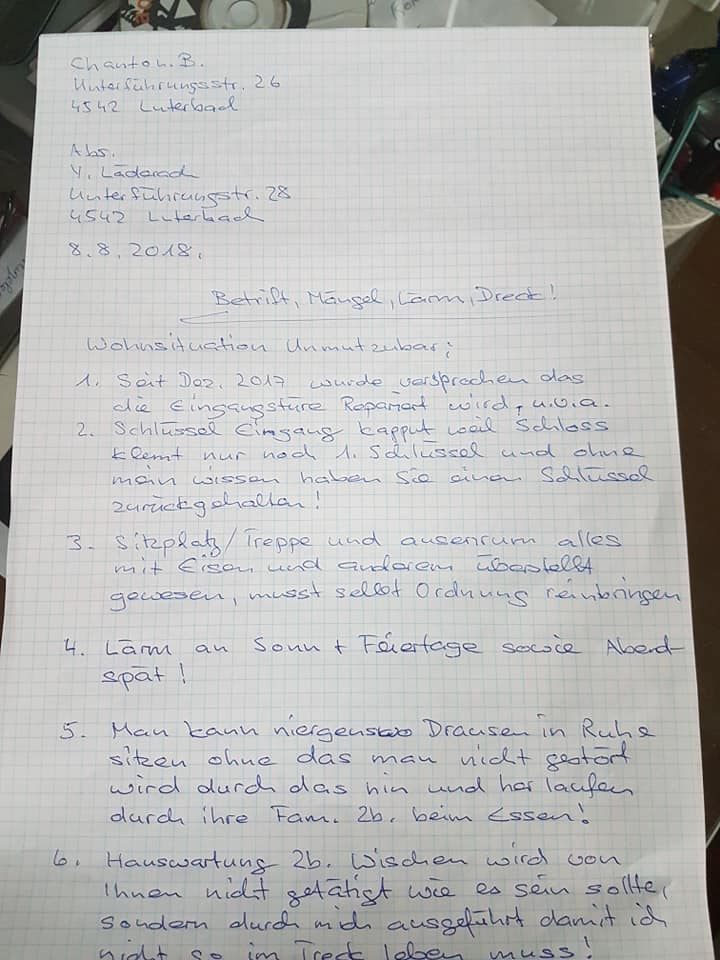 Chanton. B.
Unterführungsstr. 26
4542 Luterbach
Abs.
Y. Läderach
Unterführungstr. 28
4542 Luterbach
8.8.2018.
Betrift, Mängel, Lärm, Dreck!
Wohnsituation Unmutzubar;
1. Seit Dez. 2017 wurde versprochen das
die Eingangstüre Repariert wird, u.v.a.
2. Schlüssel Eingang kapput weil Schloss
klemt nur noch 1. Schlüssel und ohne
mein wissen haben Sie einen Schlüssel
zurückgehalten!
3. Sitzplatz/Treppe und ausenrum alles
mit Eisen und anderem überstellt
gewesen, musst selbst Ordnung reinbringen
4. Lärm an Sonn + Feiertage sowie Abend-
spät!
5. Man kann niergenswo Drausen in Ruhe
sitzen ohne das man nicht gestört
wird durch das hin und her laufen
durch ihre Fam. zb. beim Essen!
6. Hauswartung zb. Wischen wird von
Ihnen nicht getätigt wie es sein sollte,
sondern durch mich ausgeführt damit ich
nicht so im Treck leben muss!